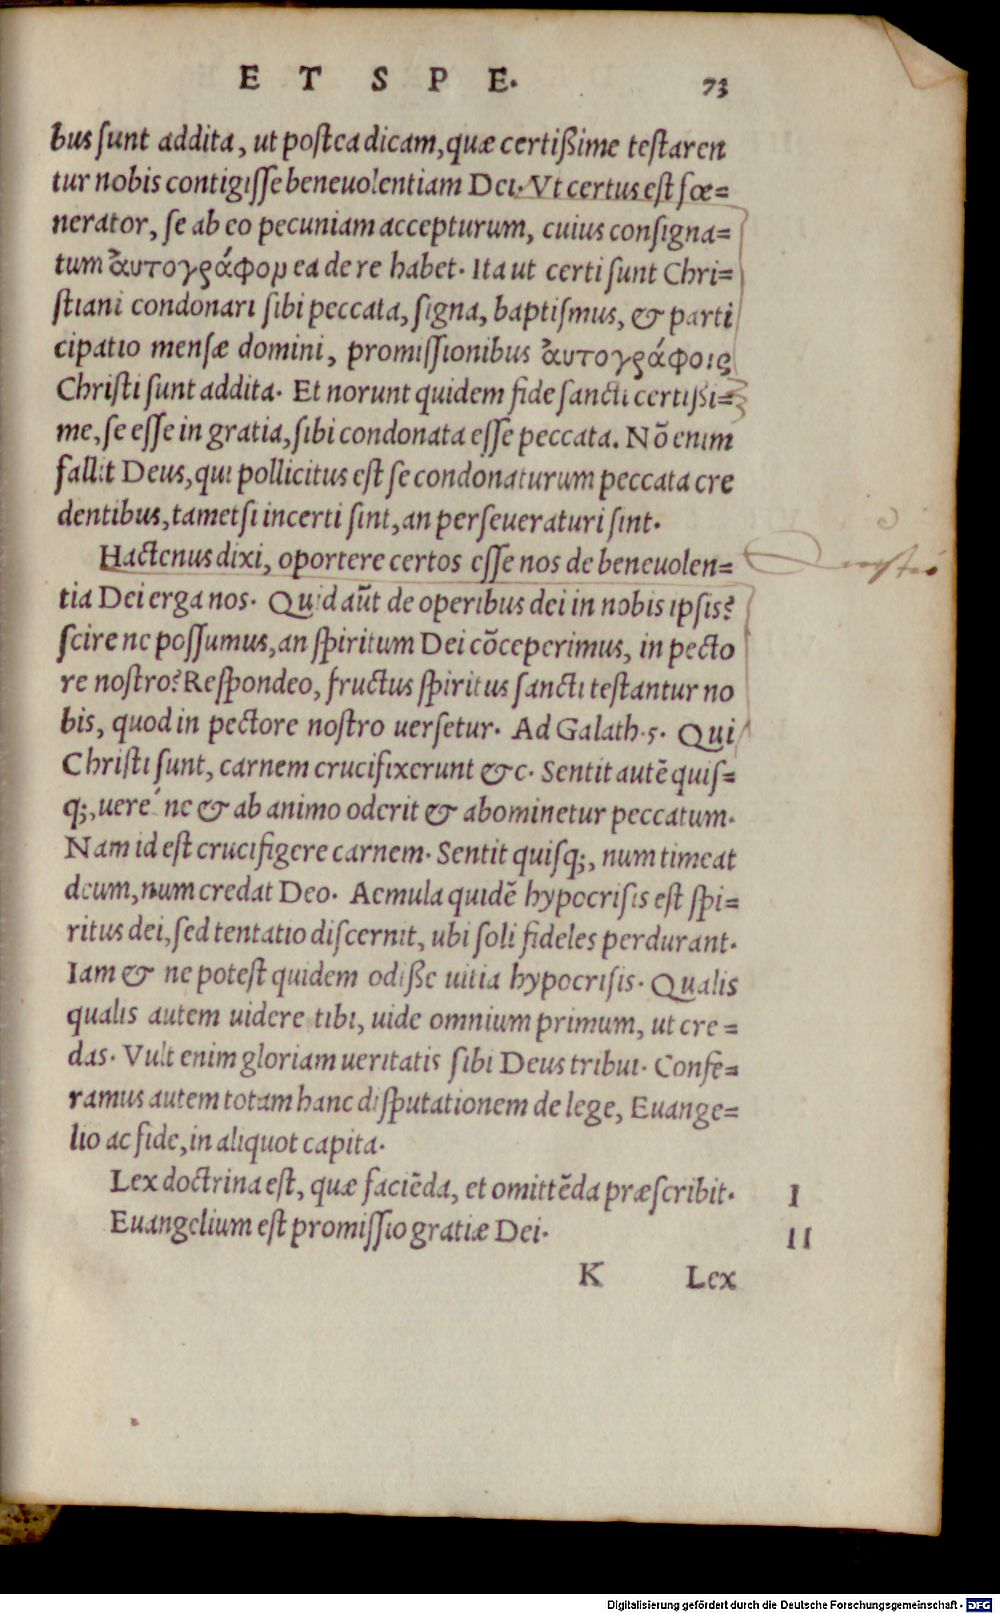 ET SPE. 73
bus sunt addita, ut postea dicam, quæ certißime testaren
tur nobis contigisse beneuolentiam Dei. Vt certus est fœ=
nerator, se ab eo pecuniam accepturum, cuius consigna=
tum ἀυτογράφορ ea de re habet. Ita ut certi sunt Chri=
stiani condonari sibi peccata, signa, baptismus, & parti
cipatio mensæ domini, promissionibus ἀυτογράφοις
Christi sunt addita. Et norunt quidem fide sancti certißi=
me, se esse in gratia, sibi condonata esse peccata. Nõ enim
fallit Deus, qui pollicitus est se condonaturum peccata cre
dentibus, tametsi incerti sint, an perseueraturi sint.
Hactenus dixi, oportere certos esse nos de beneuolen=
tia Dei erga nos. Quid aũt de operibus dei in nobis ipsis?
scire ne possumus, an spiritum Dei cõceperimus, in pecto
re nostro? Respondeo, fructus spiritus sancti testantur no
bis, quod in pectore nostro uersetur. Ad Galath.5. Qui
Christi sunt, carnem crucifixerunt &c. Sentit autẽ quis=
q;, uere´ ne & ab animo oderit & abominetur peccatum.
Nam id est crucifigere carnem. Sentit quisq;, num timeat
deum, num credat Deo. Aemula quidẽ hypocrisis est spi=
ritus dei, sed tentatio discernit, ubi soli fideles perdurant.
Iam & ne potest quidem odiße uitia hypocrisis. Qualis
qualis autem uidere tibi, uide omnium primum, ut cre=
das. Vult enim gloriam ueritatis sibi Deus tribui. Confe=
ramus autem totam hanc disputationem de lege, Euange=
lio ac fide, in aliquot capita.
Lex doctrina est, quæ faciẽda, et omittẽda præscribit. I
Euangelium est promissio gratiæ Dei. II
K Lex
Digitalisierung gefördert durch die Deutsche Forschungsgemeinschaft - DFG